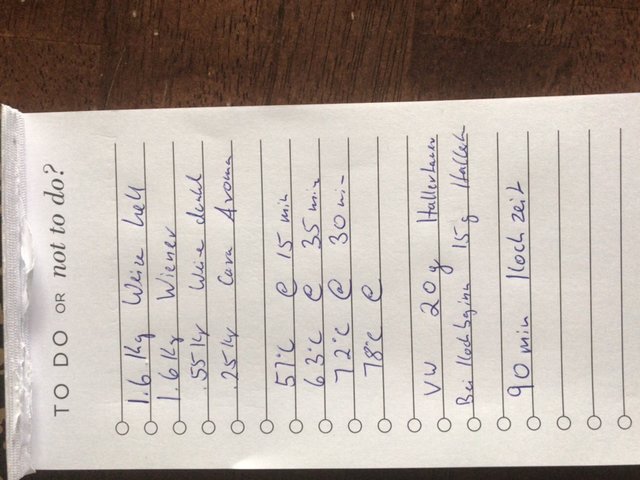 TO DO OR not to do?
1.6 Kg Weize hell
1.6 Kg Wiener
.55 Kg Weize dunkel
.25 Kg Cara Aroma
57°C @ 15 min
63°C @ 35 min
72°C @ 30 min
78°C @
VW 20g Hallertauer
Bei Kochbeginn 15g Hallert
90 min Kochzeit